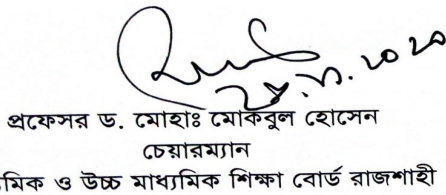 ২৮.১০.২০২০
প্রফেসর ড. মোহাঃ মোকবুল হোসেন
চেয়ারম্যান
মিক ও উচ্চ মাধ্যমিক শিক্ষা বোর্ড রাজশাহী